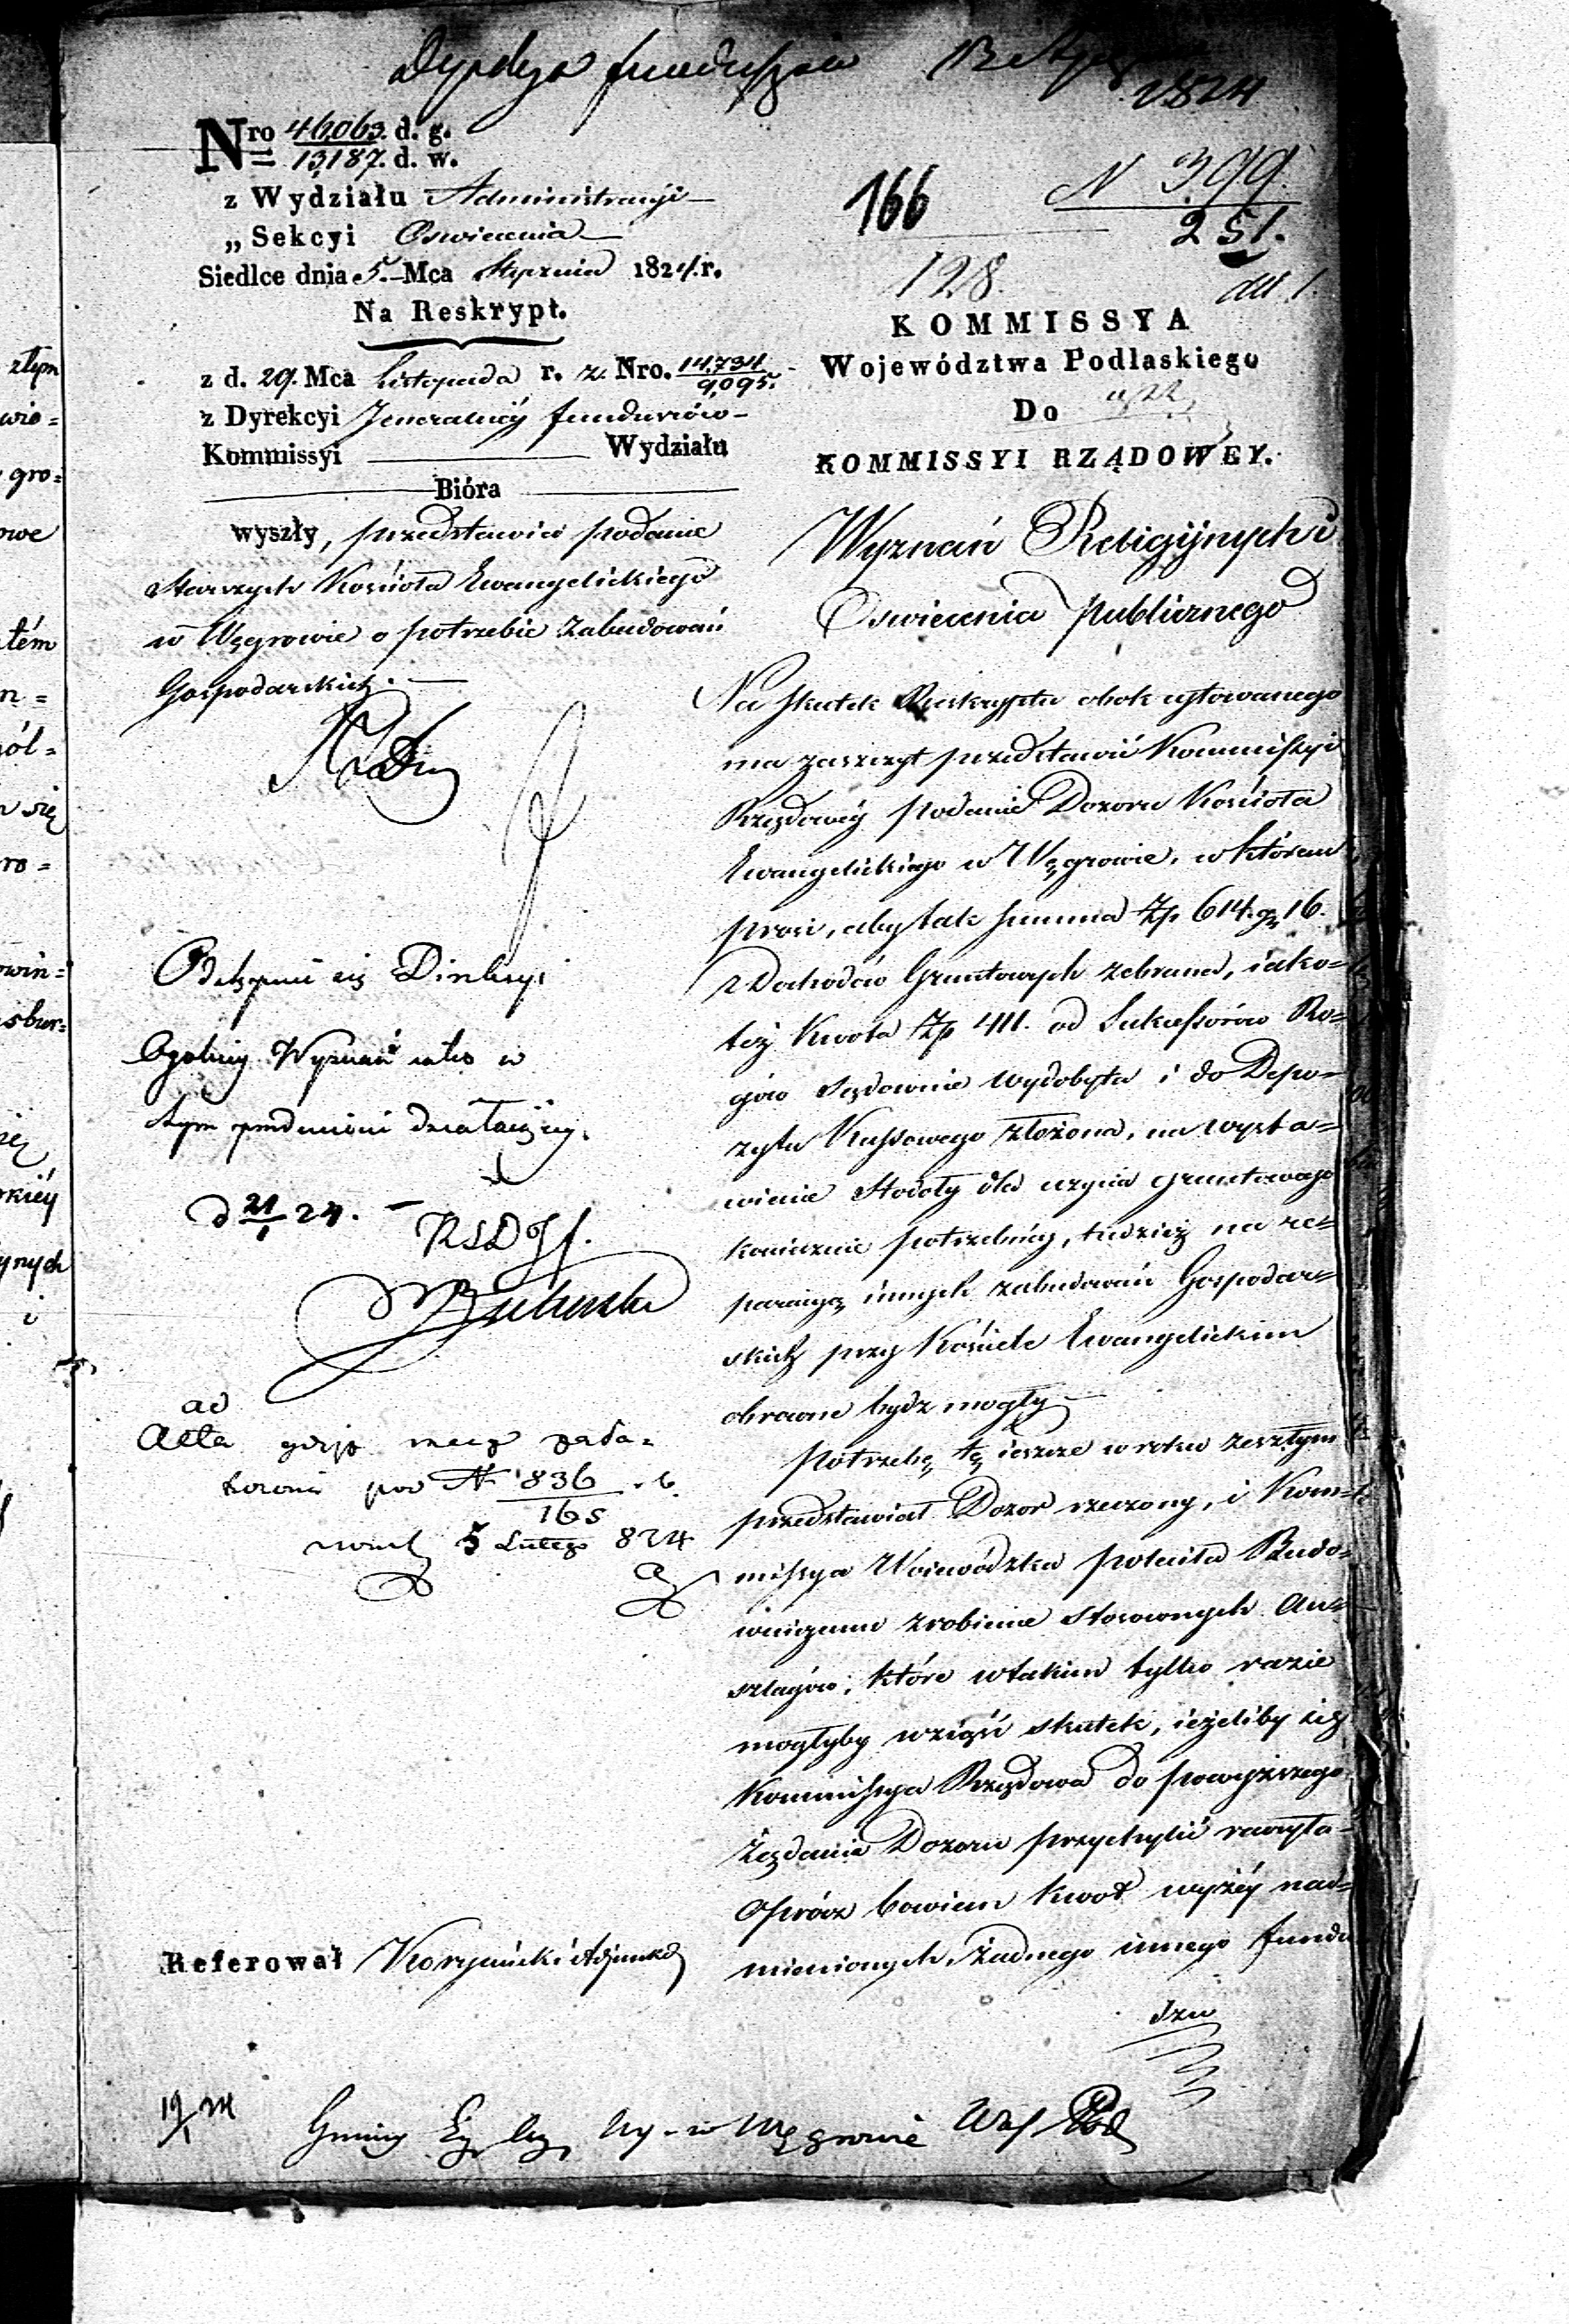 Dyrekcya funduszów
1824
Nro 46,063. d. g.
13,187. d. w.
z Wydziału Administracyi
„ Sekcyi Oswiecenia
Siedlce dnia 5. Mca Stycznia 1824. r.
Na Reskrypt.
z d. 29. Mca Listopada r. z. Nro. 14,734
9,095.
z Dyrekcyi Jeneralnéy funduszów
Kommissyi Wydziału
Bióra
wyszły, przedstawia podanie
Starszych Kościoła Ewangelickiego
w Węgrowie o potrzebie Zabudowań
Gospodarskich.
Odstąpić się Direkcyi
Ogólnéy Wyznań jako w
tym przedmiocie działaiącéy.
d 21/1 24.
ad
Acta gdyż rzecz zała-
twiona pod N 836
165
5 Lutego 824
Referował Koryciński Adjunkt
166
N 399.
251.
128.
KOMMISSYA
Województwa Podlaskiego
Do
KOMMISSYI RZĄDOWEY.
Wyznań Religijnych i
Oswiecenia Publicznego
Na skutek Reskryptu obok cytowanego
ma zaszczyt przedstawić Kommissyi
Rządowéy podanie Dozoru Kościoła
Ewangelickiego w Węgrowie, w którem
prosi, aby tak summa Złp 614. gr 16.
z Dochodów Gruntowych zebrana, iako-
też Kwota Złp 411. od Sukcessorów Ro-
gów Sądownie wydobyta i do Depo-
zytu Kassowego złożona, na wysta-
wienie Stodoły dla użycia gruntowego
koniecznie potrzebnéy, tudzież na re-
paracyą innych zabudowań Gospodar-
skich przy Kościele Ewangelickim
obrócone bydz mogły
Potrzebę tę ieszcze w roku zeszłym
przedstawiał Dozór rzeczony, i Kom-
missya Woiewódzka poleciła Budo-
wniczemu zrobienie stosownych An-
szlagów, które w takim tylko razie
mogłyby wziąść skutek, ieżeliby się
Kommissya Rządowa do powyższego
Żądania Dozoru przychylić raczyła
Oprócz bowiem kwot wyżéy nad-
mienionych, żadnego innego fundu
szu
19/1 24
Gminy w Węgrowie